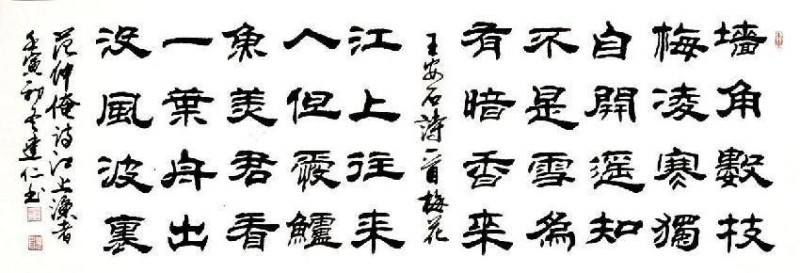 墻角數枝
梅凌寒獨
自開遥知
不是雪為
有暗香来
王安石詩一首梅花
江上往来
人但愛鱸
魚美君看
一葉舟出
没風波裏
范仲淹诗江上漁者
壬寅初冬建仁书